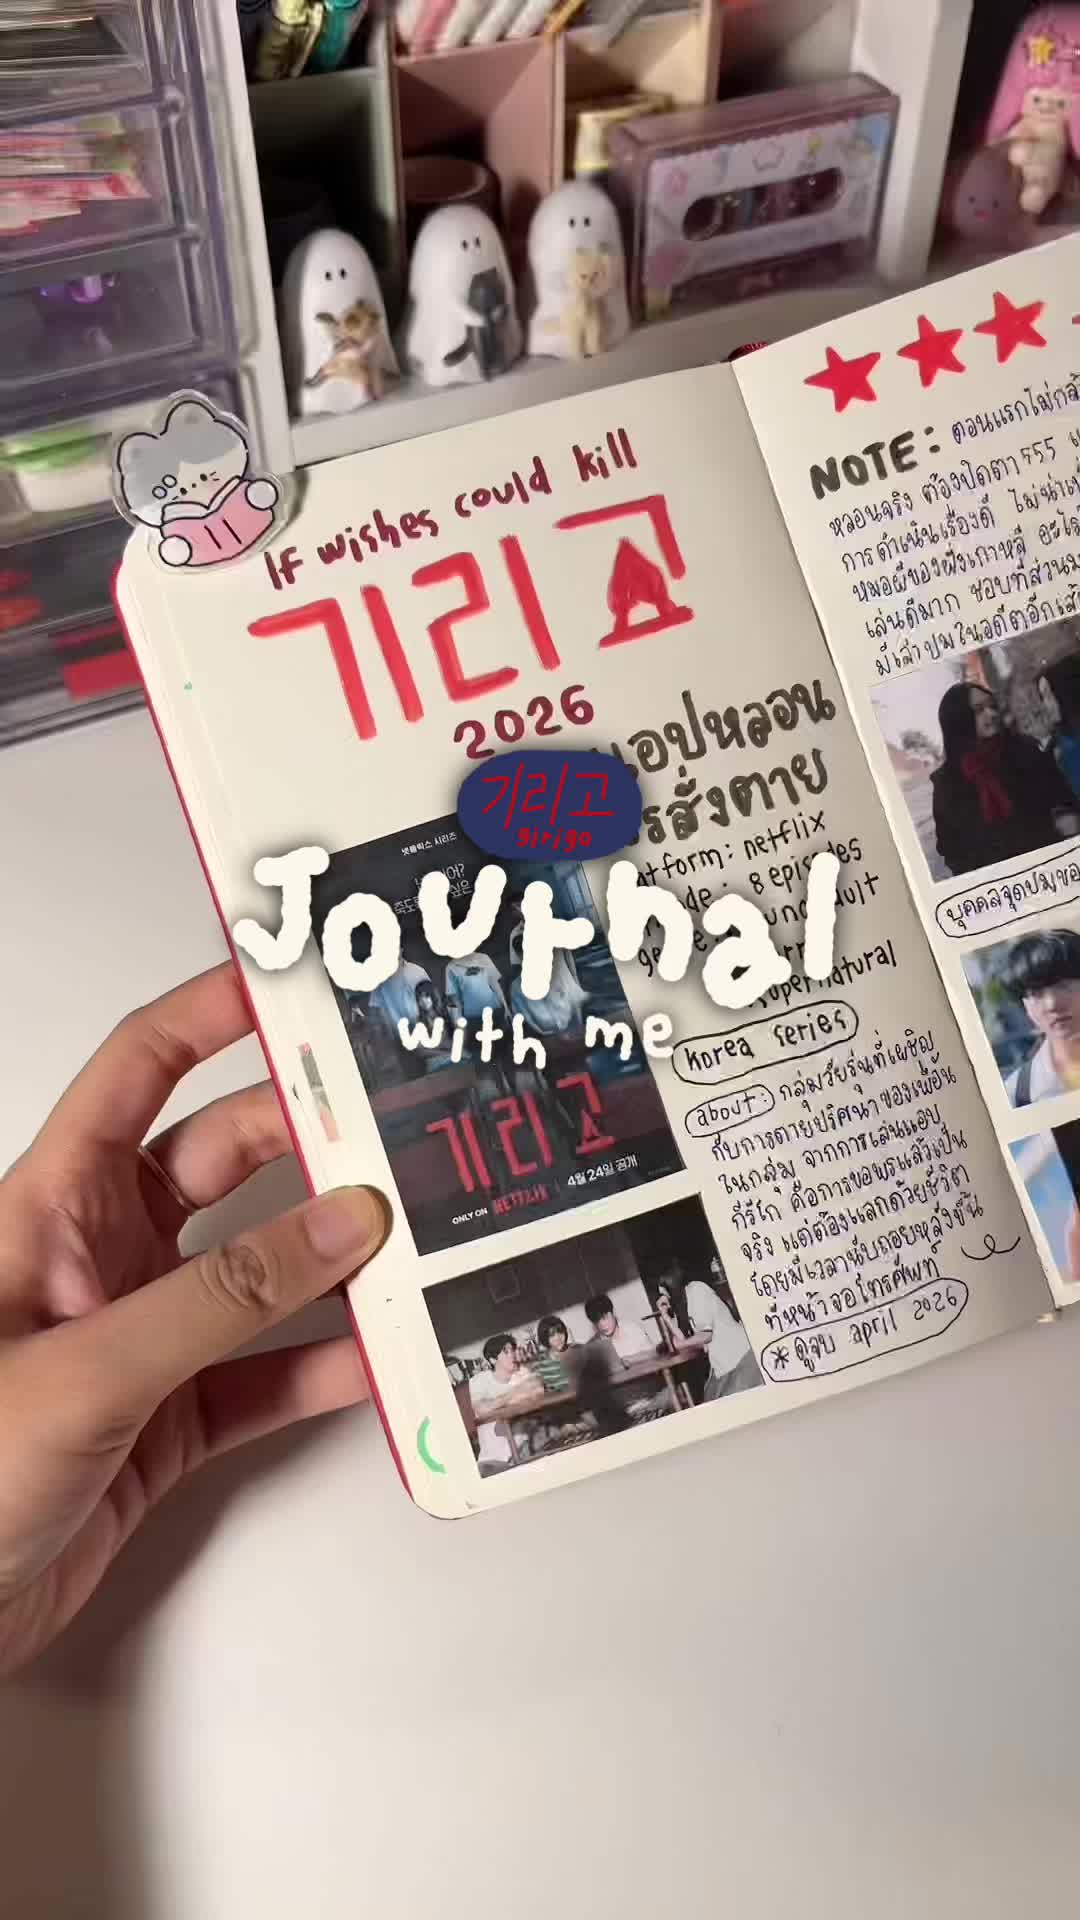 If wishes could kill
기리고
2026
แอปหลอน
สั่งตาย
기리고
girigo
Journal
with me
넷플릭스 시리즈
platform: netflix
8 episodes
supernatural
korea series
about: กลุ่มวัยรุ่นที่เผชิญ
กับการตายปริศนาของเพื่อน
ในกลุ่ม จากการเล่นแอบ
กีรีโก คือการขอพรแล้วเป็น
จริง แต่ต้องแลกด้วยชีวิต
โดยมีเวลานับถอยหลังขึ้น
ที่หน้าจอโทรศัพท์
*ดูจบ april 2026
기리고
ONLY ON NETFLIX | 4월 24일 공개
NOTE: ตอนแรกไม่กล้า
หลอนจริง ต้องปิดตา 555
การดำเนินเรื่องดี ไม่น่าเบื่อ
หมอผีของฝั่งเกาหลี
เล่นดีมาก ชอบที่ส่วน
มีเล่าปมในอดีตอีก
บุคคลจุดปมของ